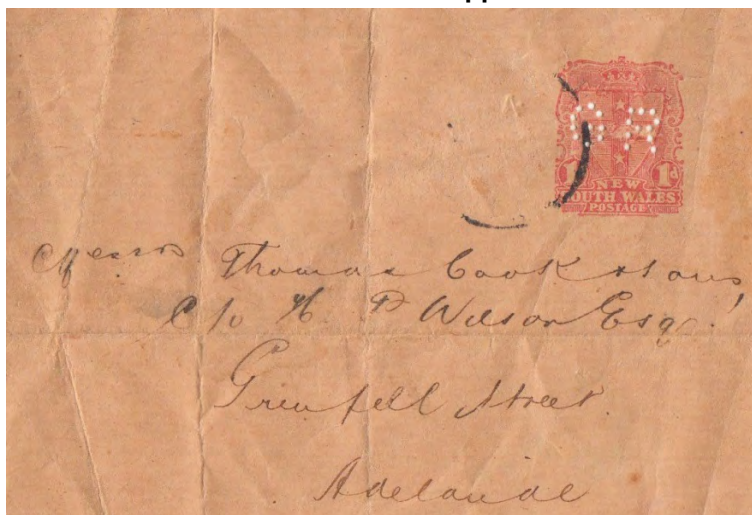 O.R
1 1d
NEW
SOUTH WALES
POSTAGE
Messrs Thomas Cook & Sons
C/o H. D Wilson Esq.
Grenfell Street
Adelaide